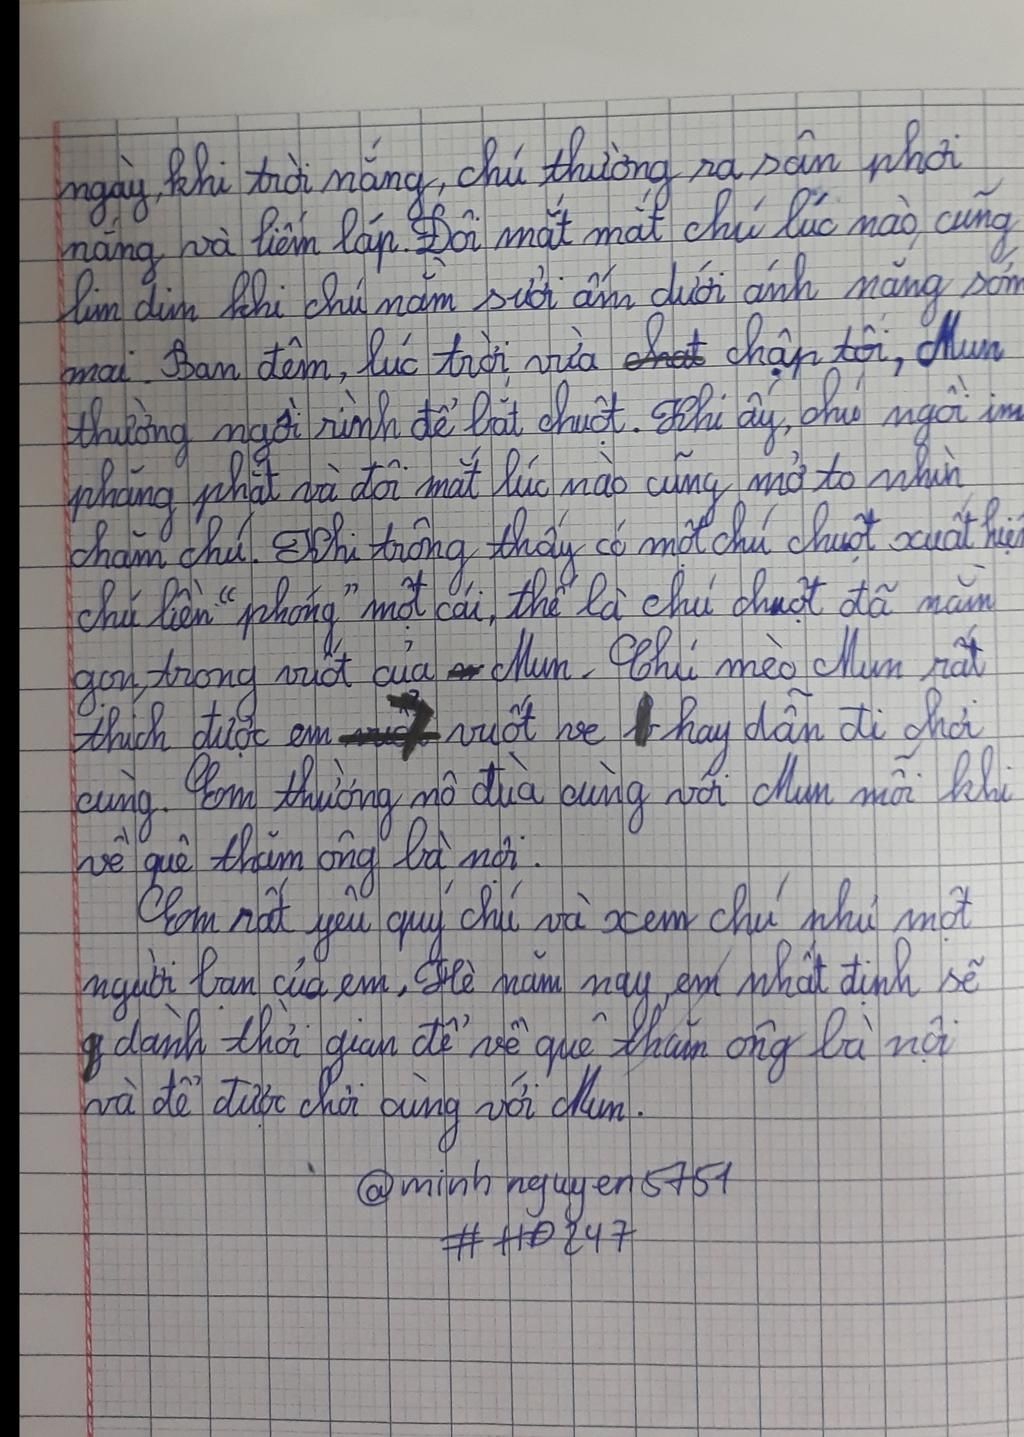 ngày, khi trời nắng, chú thường ra sân phơi
nắng và liếm láp. Đôi mắt mắt chú lúc nào cũng
lim dim khi chú nằm sưởi ấm dưới ánh nắng sớm
mai. Ban đêm, lúc trời vừa chập tối, Mun
thường ngồi rình để bắt chuột. Khi ấy, chú ngồi im
phăng phắt và đôi mắt lúc nào cũng mở to nhìn
chăm chú. Khi trông thấy có một chú chuột xuất hiện
chú liền “phóng” một cái, thế là chú chuột đã nằm
gọn trong vuốt của Mun. Chú mèo Mun rất
thích được em vuốt ve hay dẫn đi chơi
cùng. Em thường nô đùa cùng với Mun mỗi khi
về quê thăm ông bà nội.
Em rất yêu quý chú và xem chú như một
người bạn của em, Hè năm nay em nhất định sẽ
dành thời gian để về quê thăm ông bà nội
và để được chơi cùng với Mun.
@minhnguyen5751
#HD247